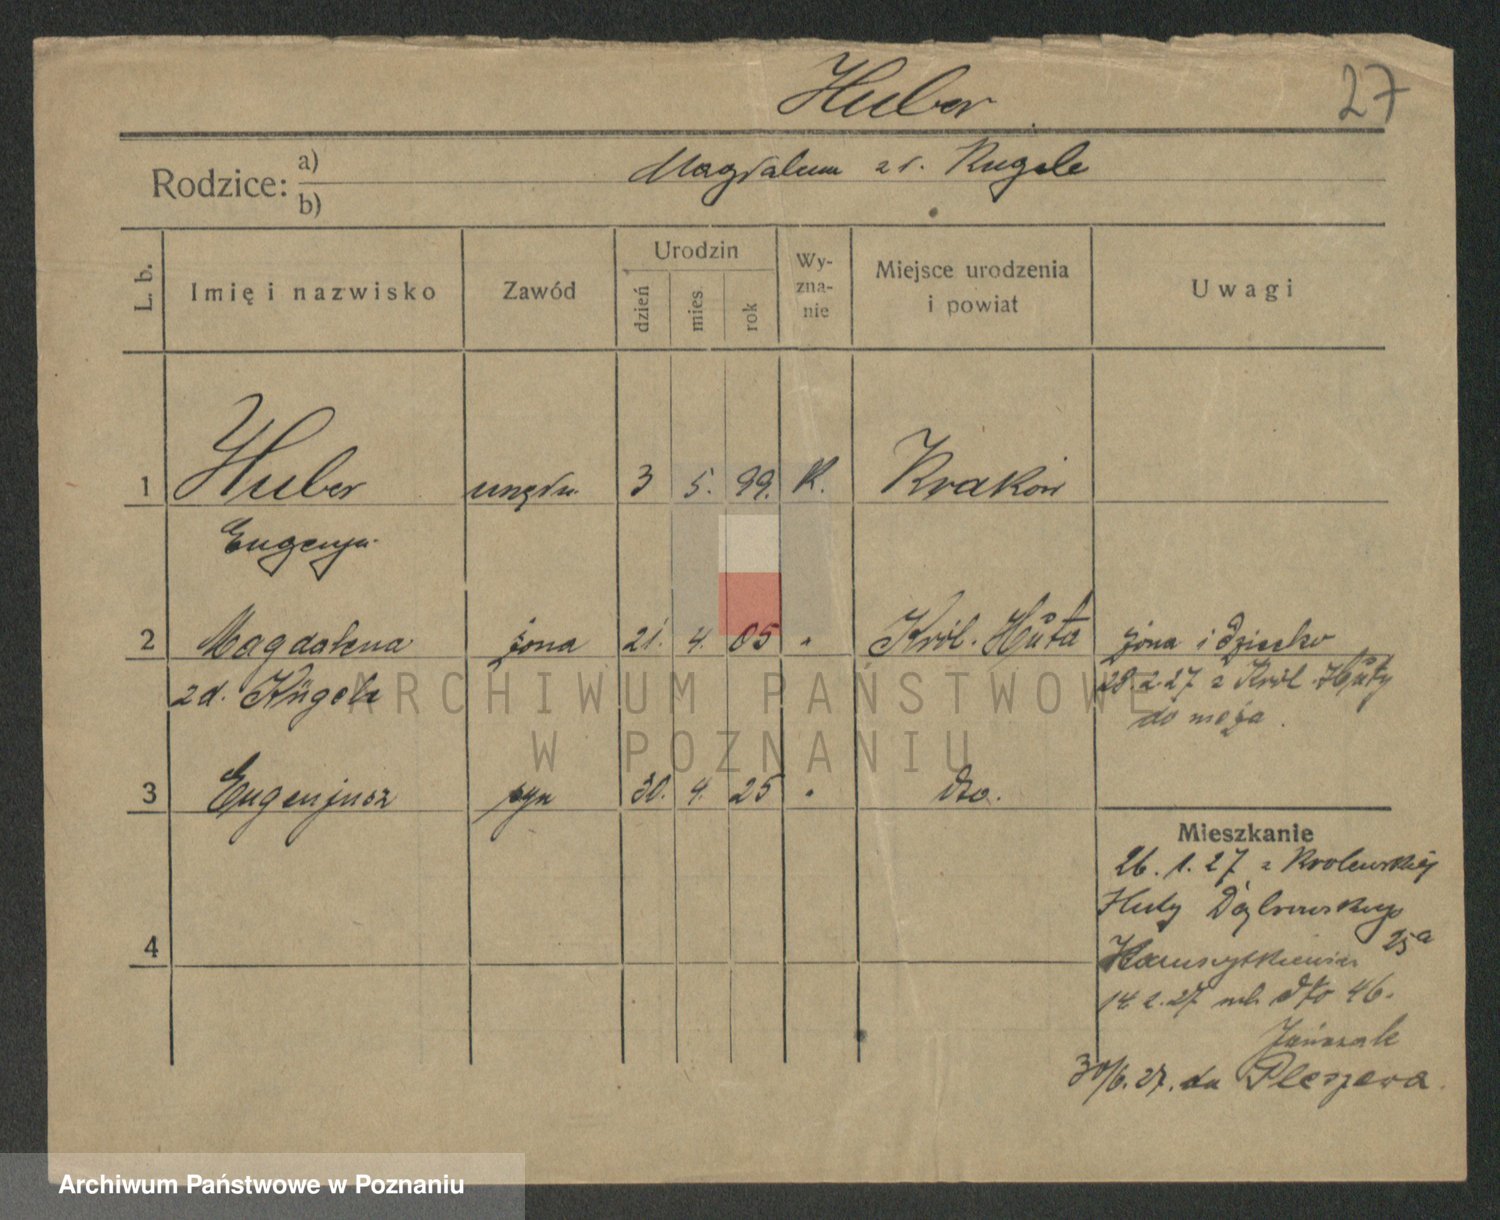 Huber
27
Rodzice: a)
b)
Magdalena z d. Kugele
L. b.
Imię i nazwisko
Zawód
Urodzin
dzień
mies.
rok
Wy-
zna-
nie
Miejsce urodzenia
i powiat
Uwagi
1 Huber urzędn. 3 5. 99. K. Kraków
Eugenju
2 Magdalena żona 21. 4. 05 " Król. Huta żona i dziecko
zd. Kügele 28.2.27 z Król. Huty
do męża.
3 Eugenjusz syn 30. 4. 25 " dto.
Mieszkanie
26. 1. 27 z Krolewskiej
Huty Dąbrowskiego
25a
4
14.2.27 dto 46.
Janczak
30/6.27. do Pleszewa.
ARCHIWUM PAŃSTWOWE
W POZNANIU
Archiwum Państwowe w Poznaniu